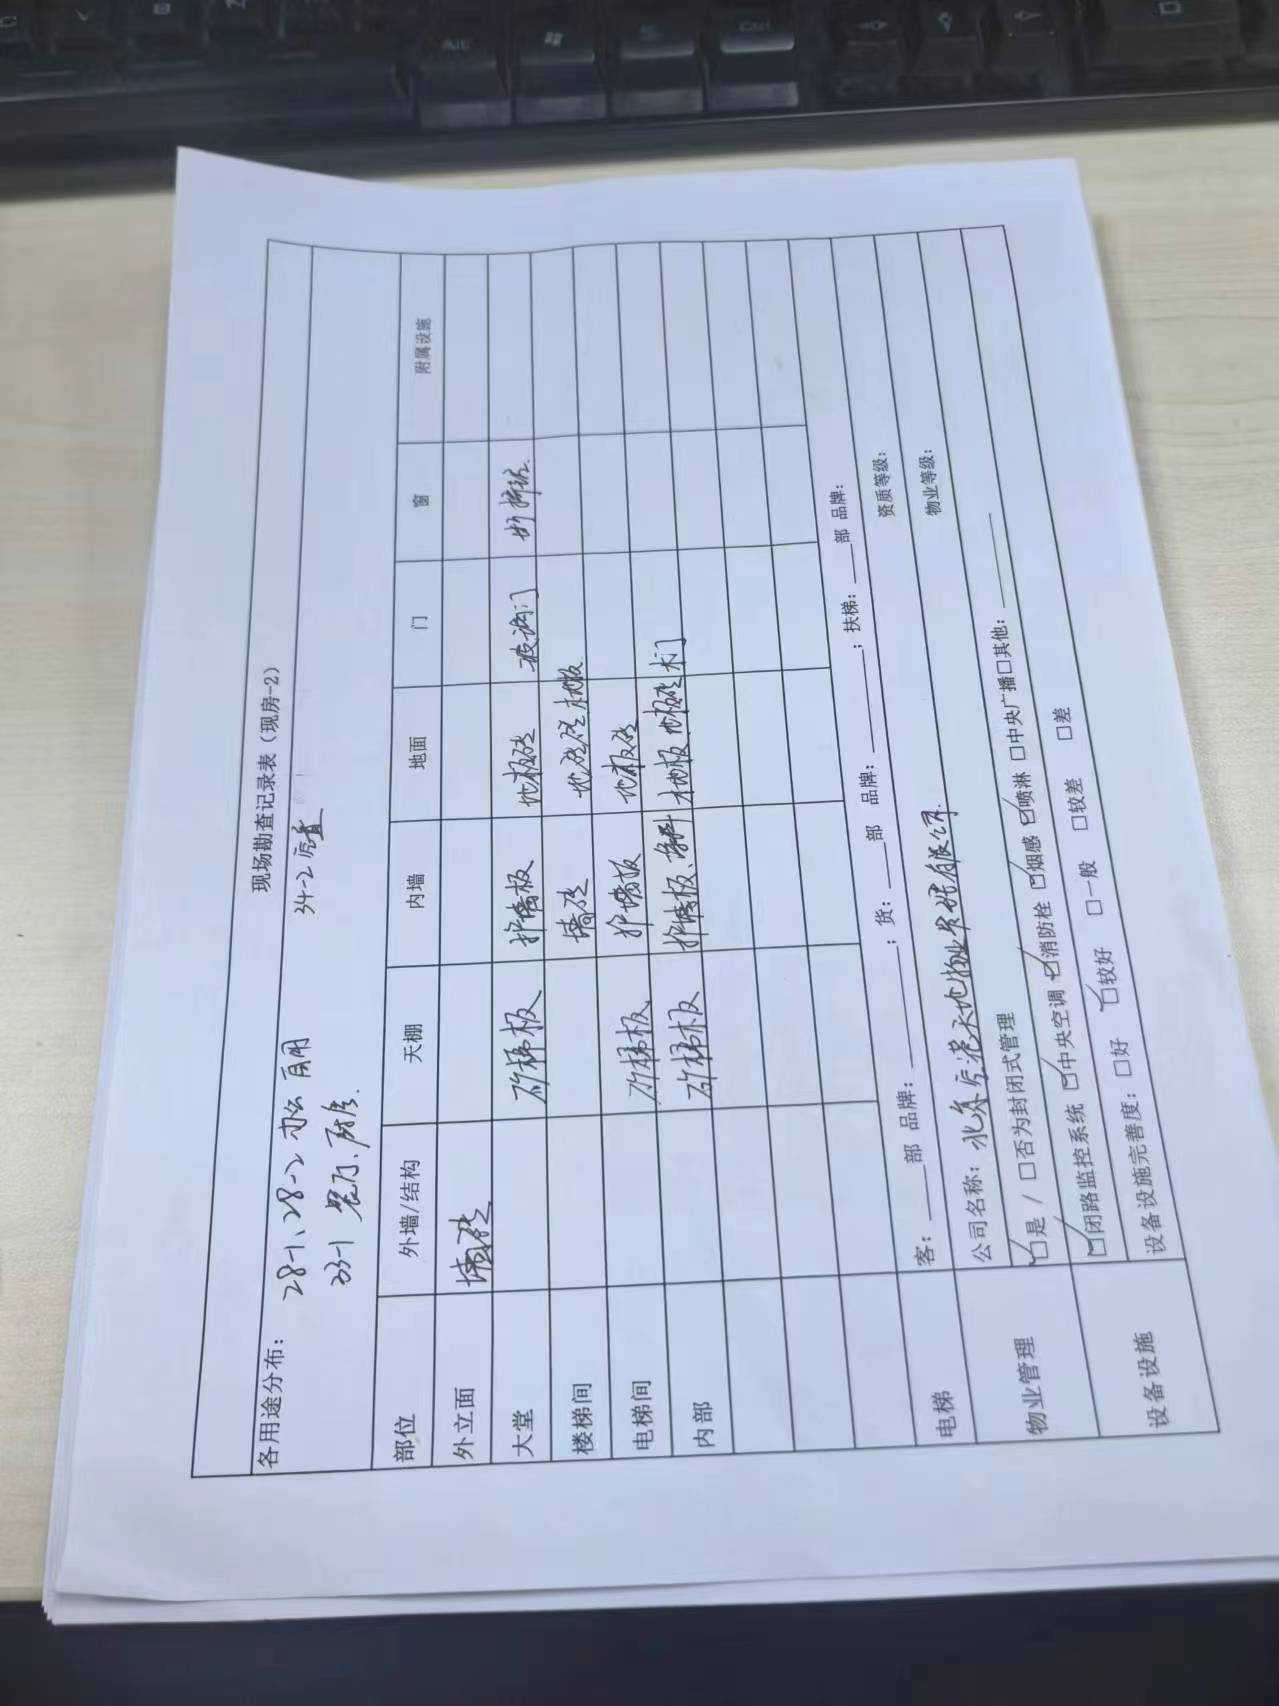 现场勘查记录表（现房-2）
各用途分布： 28-1、28-2 办公 商用 34-2 空置
33-1 展厅、厨房.
部位 外墙/结构 天棚 内墙 地面 门 窗 附属设施
外立面 墙砖
大堂 矿棉板 护墙板 地板砖 玻璃门 断桥铝
楼梯间 墙砖 地砖 木地板
电梯间 矿棉板 护墙板 地板砖
内部 矿棉板 护墙板、涂料 木地板 地板砖 木门
电梯 客：____部 品牌：________；货：____部 品牌：________；扶梯：____部 品牌：
物业管理 公司名称：北京空港天地物业管理有限公司. 资质等级：
☑是 / □否为封闭式管理 物业等级：
设备设施 ☑闭路监控系统 ☑中央空调 ☑消防栓 ☑烟感 ☑喷淋 □中央广播 □其他：________
设备设施完善度：□好 ☑较好 □一般 □较差 □差
Alt
Ctrl